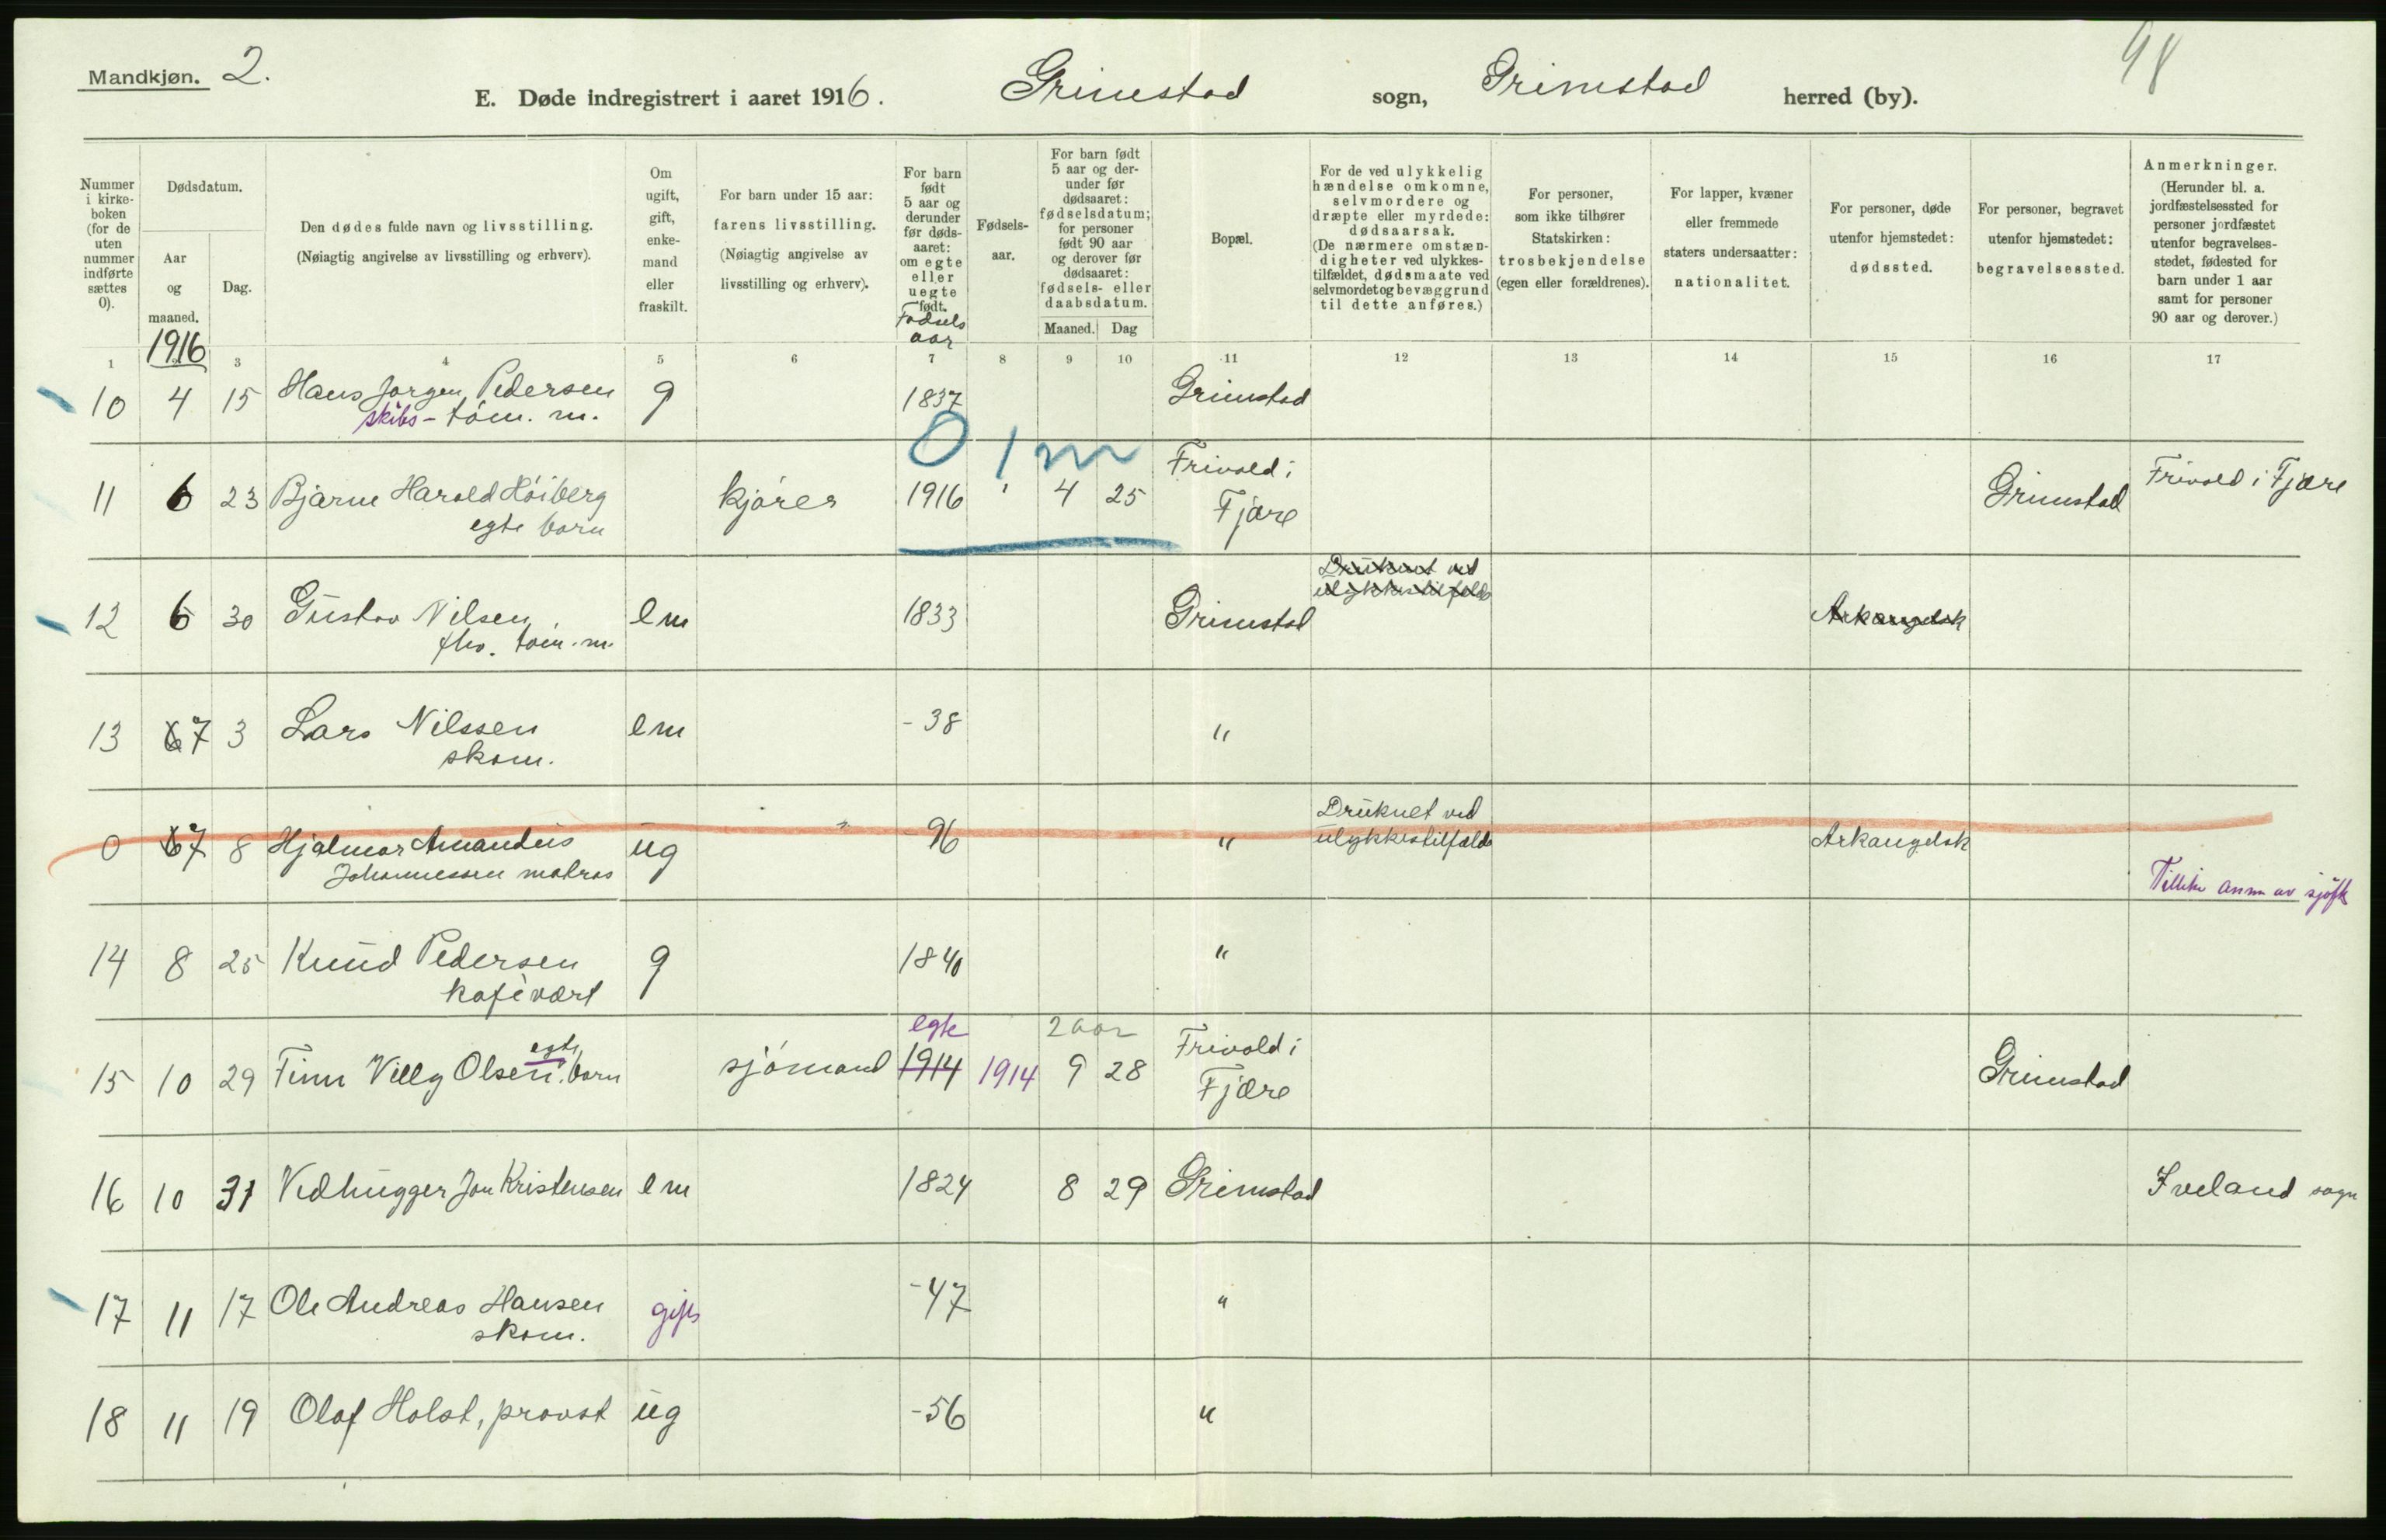 Mandkjøn. 2.
98
E. Døde indregistrert i aaret 1916. Grimstad sogn, Grimstad herred (by).
Nummer
i kirke-
boken
(for de
uten
nummer
indførte
sættes
0).
Dødsdatum.
Aar
og
maaned.
Dag.
Den dødes fulde navn og livsstilling.
(Nøiagtig angivelse av livsstilling og erhverv).
Om
ugift,
gift,
enke-
mand
eller
fraskilt.
For barn under 15 aar:
farens livsstilling.
(Nøiagtig angivelse av
livsstilling og erhverv).
For barn
født
5 aar og
derunder
før døds-
aaret:
om egte
eller
uegte
født.
Fødsels
aar
Fødsels-
aar.
For barn født
5 aar og der-
under før
dødsaaret:
fødselsdatum;
for personer
født 90 aar
og derover før
dødsaaret:
fødsels- eller
daabsdatum.
Maaned. Dag
Bopæl.
For de ved ulykkelig
hændelse omkomne,
selvmordere og
dræpte eller myrdede:
dødsaarsak.
(De nærmere omstæn-
digheter ved ulykkes-
tilfældet, dødsmaate ved
selvmordet og bevæggrund
til dette anføres.)
For personer,
som ikke tilhører
Statskirken:
trosbekjendelse
(egen eller forældrenes).
For lapper, kvæner
eller fremmede
staters undersaatter:
nationalitet.
For personer, døde
utenfor hjemstedet:
dødssted.
For personer, begravet
utenfor hjemstedet:
begravelsessted.
Anmerkninger.
(Herunder bl. a.
jordfæstelsessted for
personer jordfæstet
utenfor begravelses-
stedet, fødested for
barn under 1 aar
samt for personer
90 aar og derover.)
1 1916 3 4 5 6 7 8 9 10 11 12 13 14 15 16 17
10 4 15 Hans Jørgen Pedersen g 1837 Grimstad
skibs-tøm. m.
0 1 m
11 6 23 Bjarne Harald Høiberg kjører 1916 4 25 Frivold i Grimstad Frivold i Fjære
egte barn Fjære
Druknet ved
ulykkestilfælde
12 6 30 Gustav Nilsen em 1833 Grimstad Arkangelsk
fhv. tøm. m.
13 67 3 Lars Nilssen em -38 "
skom.
0 67 8 Hjalmar Amandus ug 96 " Druknet ved Arkangelsk
Johannessen matros ulykkestilfælde
14 8 25 Knud Pedersen g 1840 "
kafévært
egte 2 aar
15 10 29 Finn Villy Olsen egte barn sjømand 1914 1914 9 28 Frivold i Grimstad
Fjære
16 10 31 Vedhugger Jon Kristensen em 1824 8 29 Grimstad Iveland sogn
17 11 17 Ole Andreas Hansen gift -47 "
skom.
18 11 19 Olaf Holst, provst ug -56 "